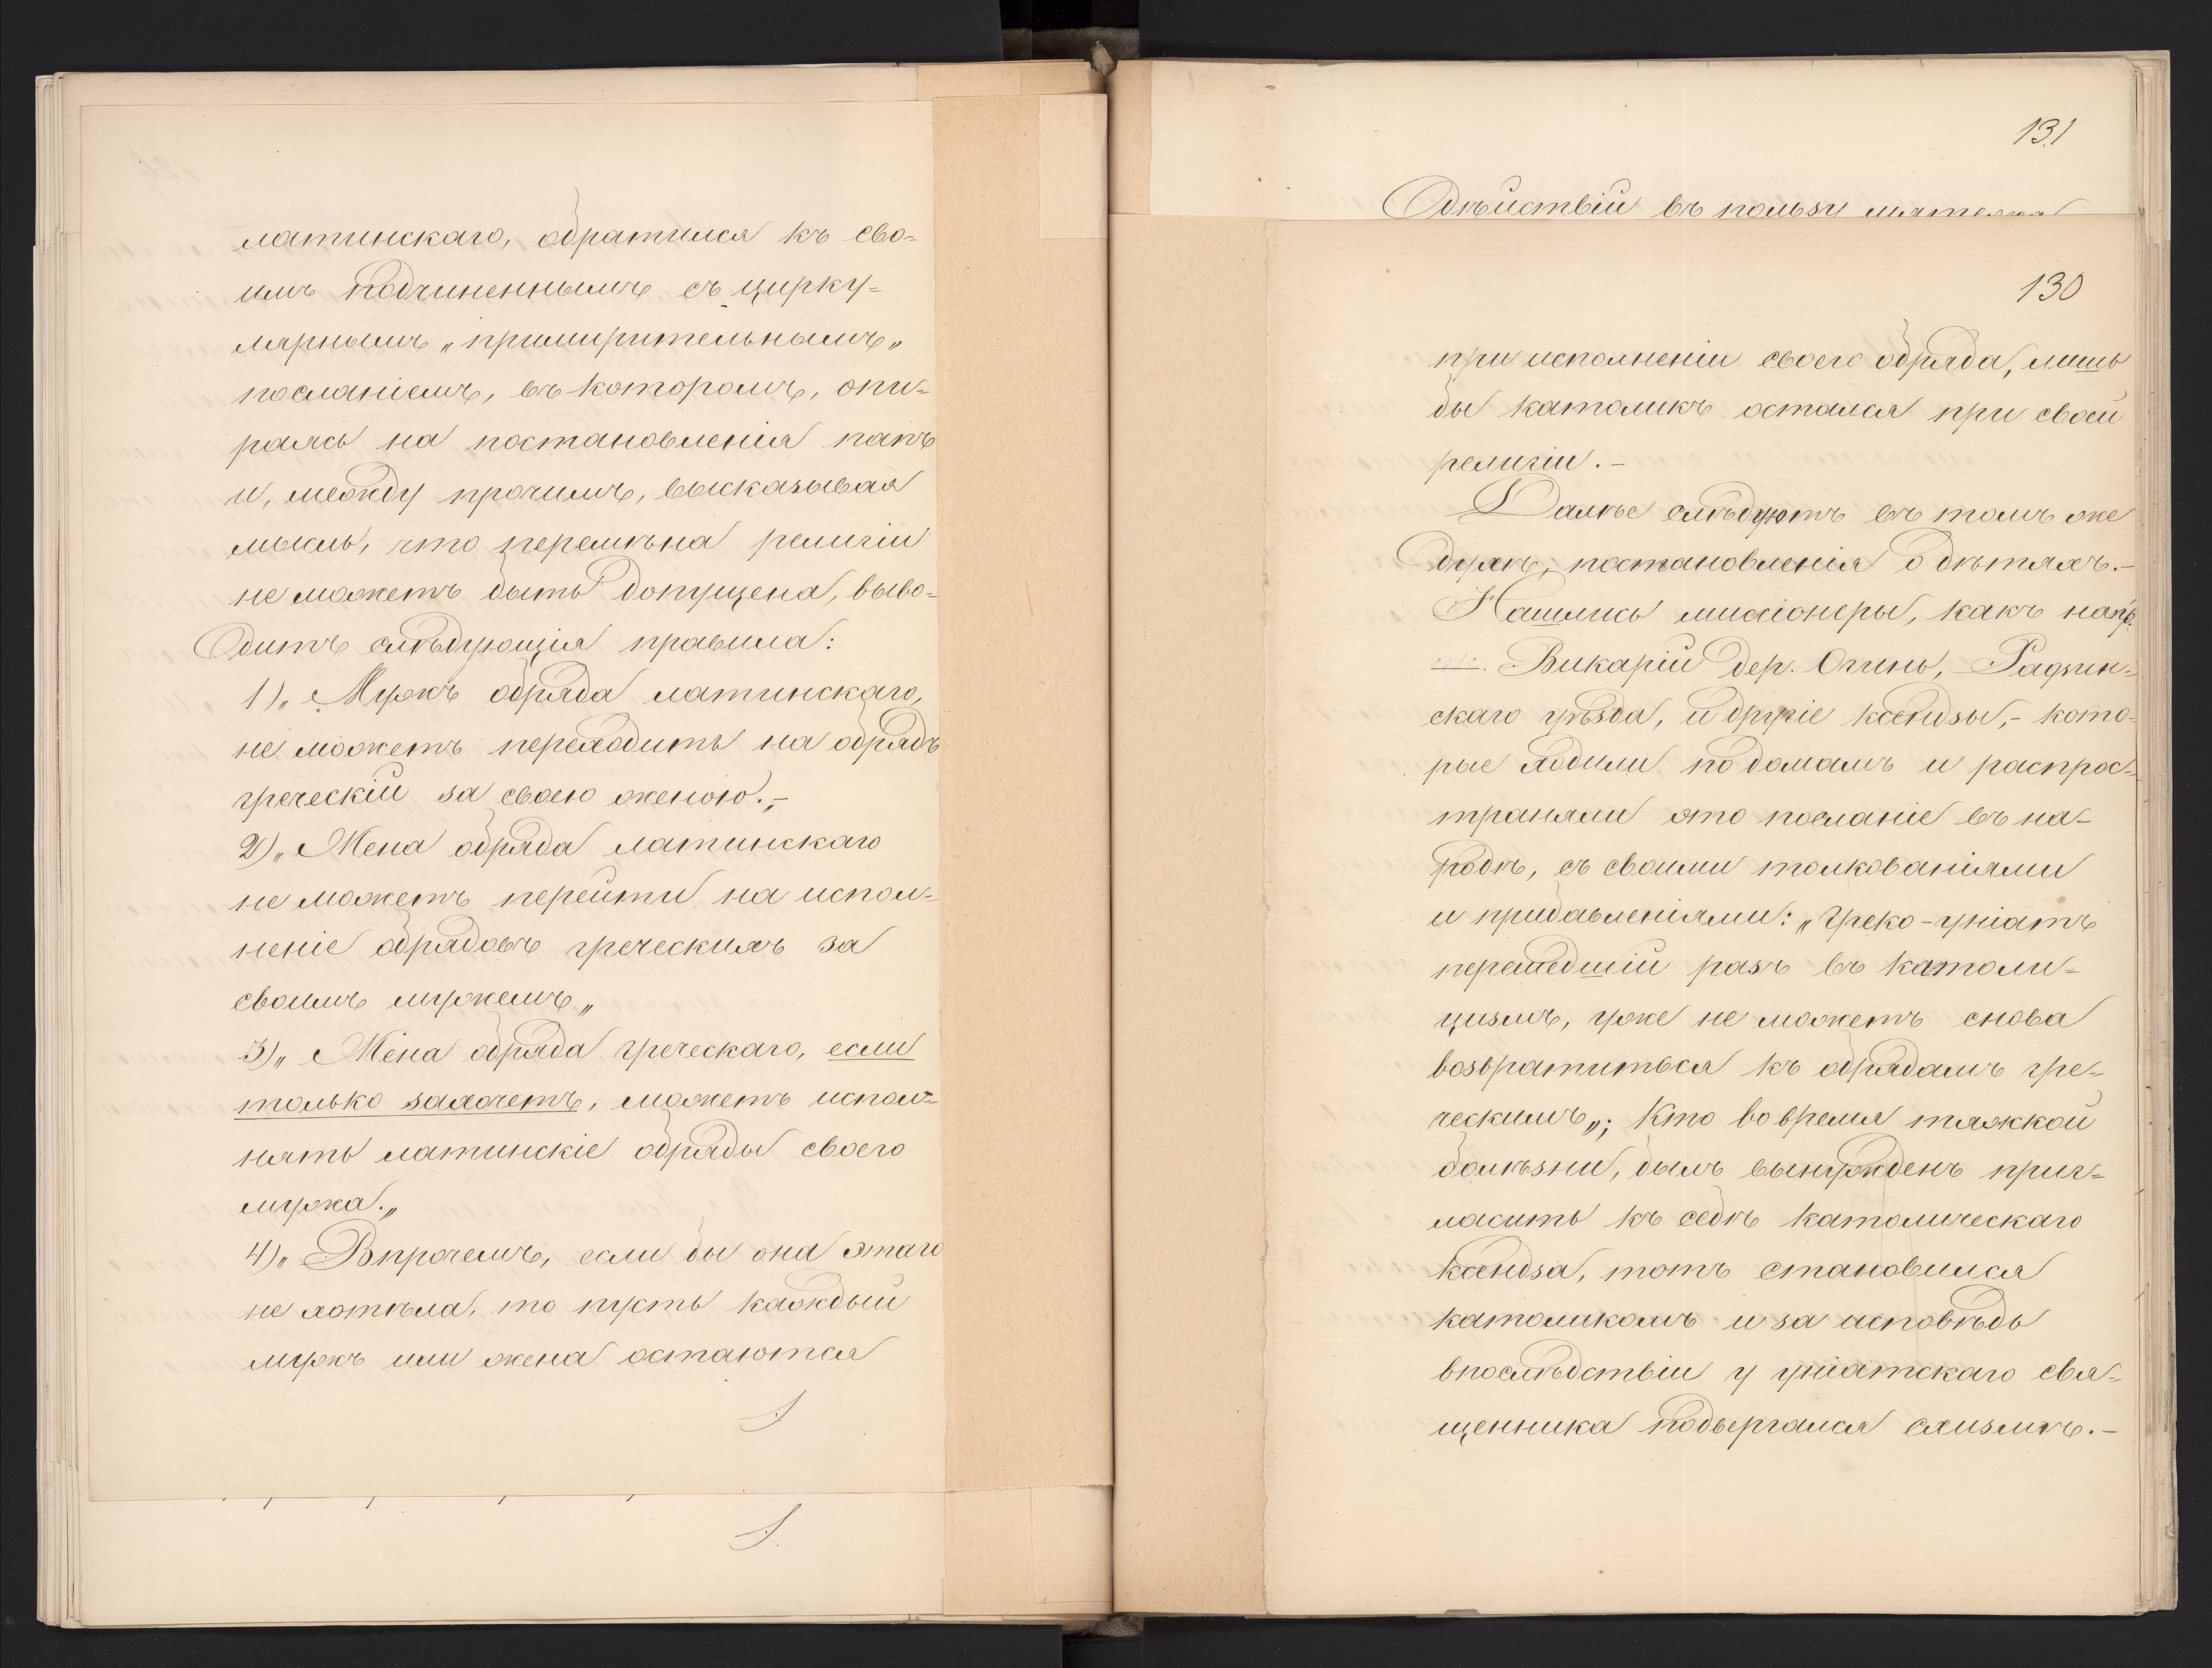 латинскаго, обратился къ сво=
имъ подчиненнымъ съ цирку=
лярнымъ „примирительнымъ„
посланіемъ, въ которомъ, опи=
раясь на постановленія папъ
и, между прочимъ, высказывая
мысль, что перемѣна религіи
не можетъ быть допущена, выво=
дитъ слѣдующія правила:
1)„ Мужъ обряда латинскаго,
не можетъ переходить на обрядъ
греческій за своею женою.„-
2)„ Жена обряда латинскаго
не можетъ перейти на испол=
неніе обрядовъ греческихъ за
своимъ мужемъ„
3)„ Жена обряда греческаго, если
только захочетъ, можетъ испол=
нять латинскіе обряды своего
мужа.„
4)„ Впрочемъ, если бы она этаго
не хотѣла, то пусть каждый
мужъ или жена остаются
131
дѣйствій въ пользу
130
при исполненіи своего обряда, лишь
бы католикъ остался при своей
религіи.-
Далѣе слѣдуютъ въ томъ же
духѣ, постановленія о дѣтяхъ.-
Нашлись миссіонеры, какъ напр.
Викарій дер. Огинь, Радзин=
скаго уѣзда, и другіе ксендзы,- кото=
рые ходили по домамъ и распрос=
траняли это посланіе въ на=
родѣ, съ своими толкованіями
и прибавленіями: „Греко-уніатъ
перешедшій разъ въ католи=
цизмъ, уже не можетъ снова
возвратиться къ обрядамъ гре=
ческимъ„; Кто во время тяжкой
болѣзни, былъ вынужденъ приг=
ласить къ себѣ католическаго
ксендза, тотъ становился
католикомъ и за исповѣдь
впослѣдствіи у уніатскаго свя=
щенника подвергался схизмѣ.-